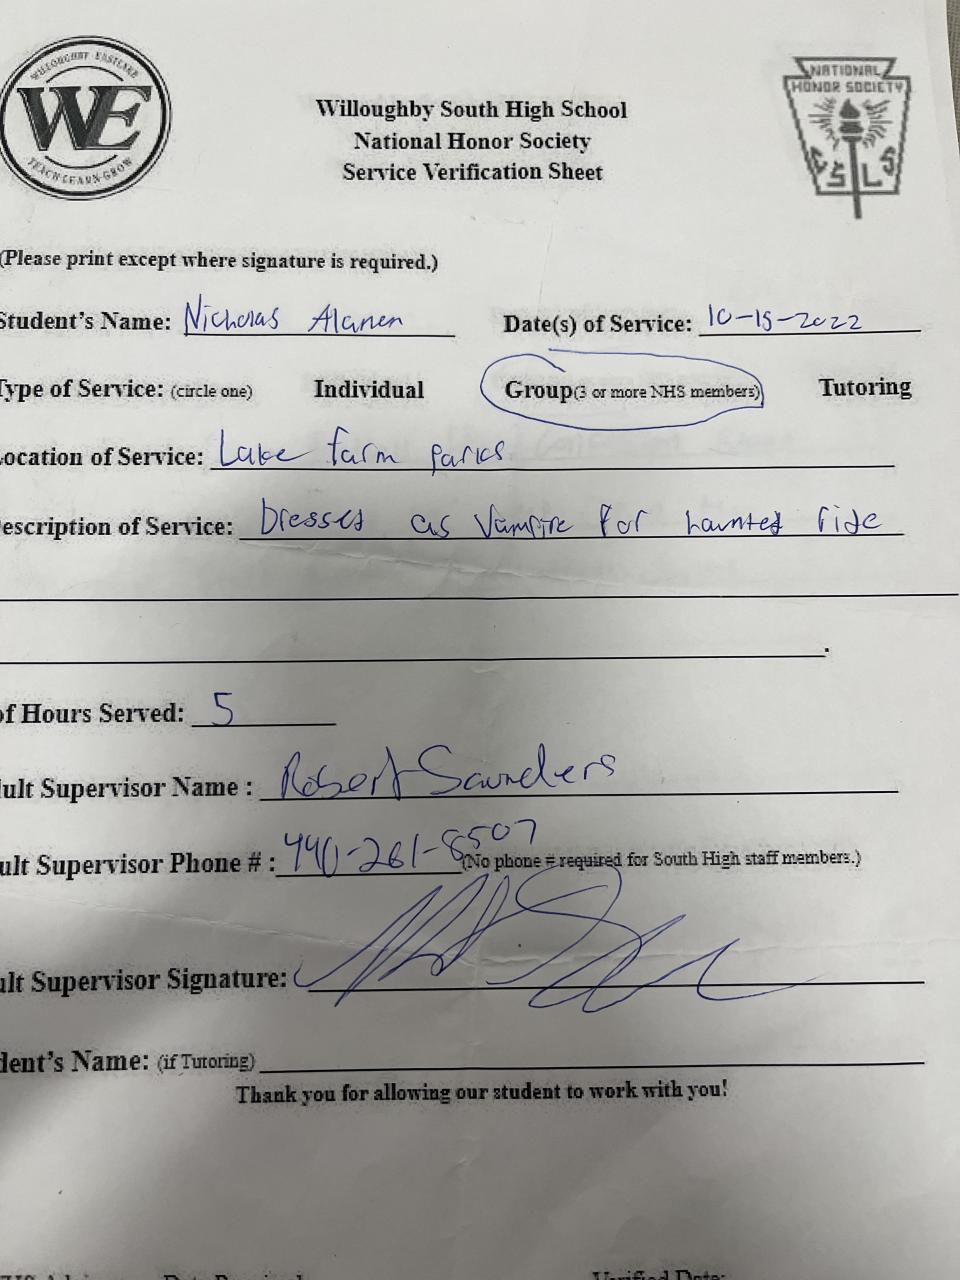 WILLOUGHBY EASTLAKE
WE
TEACH·LEARN·GROW
NATIONAL
HONOR SOCIETY
C S L S
Willoughby South High School
National Honor Society
Service Verification Sheet
(Please print except where signature is required.)
Student's Name: Nicholas Alanen Date(s) of Service: 10-15-2022
Type of Service: (circle one) Individual Group(3 or more NHS members) Tutoring
Location of Service: Lake farm parks
escription of Service: Dressed as Vampire for haunted ride
of Hours Served: 5
ult Supervisor Name : Robert Saunders
ult Supervisor Phone # : 440-261-8507 (No phone # required for South High staff members.)
ult Supervisor Signature:
dent's Name: (if Tutoring)
Thank you for allowing our student to work with you!
Verified Date: